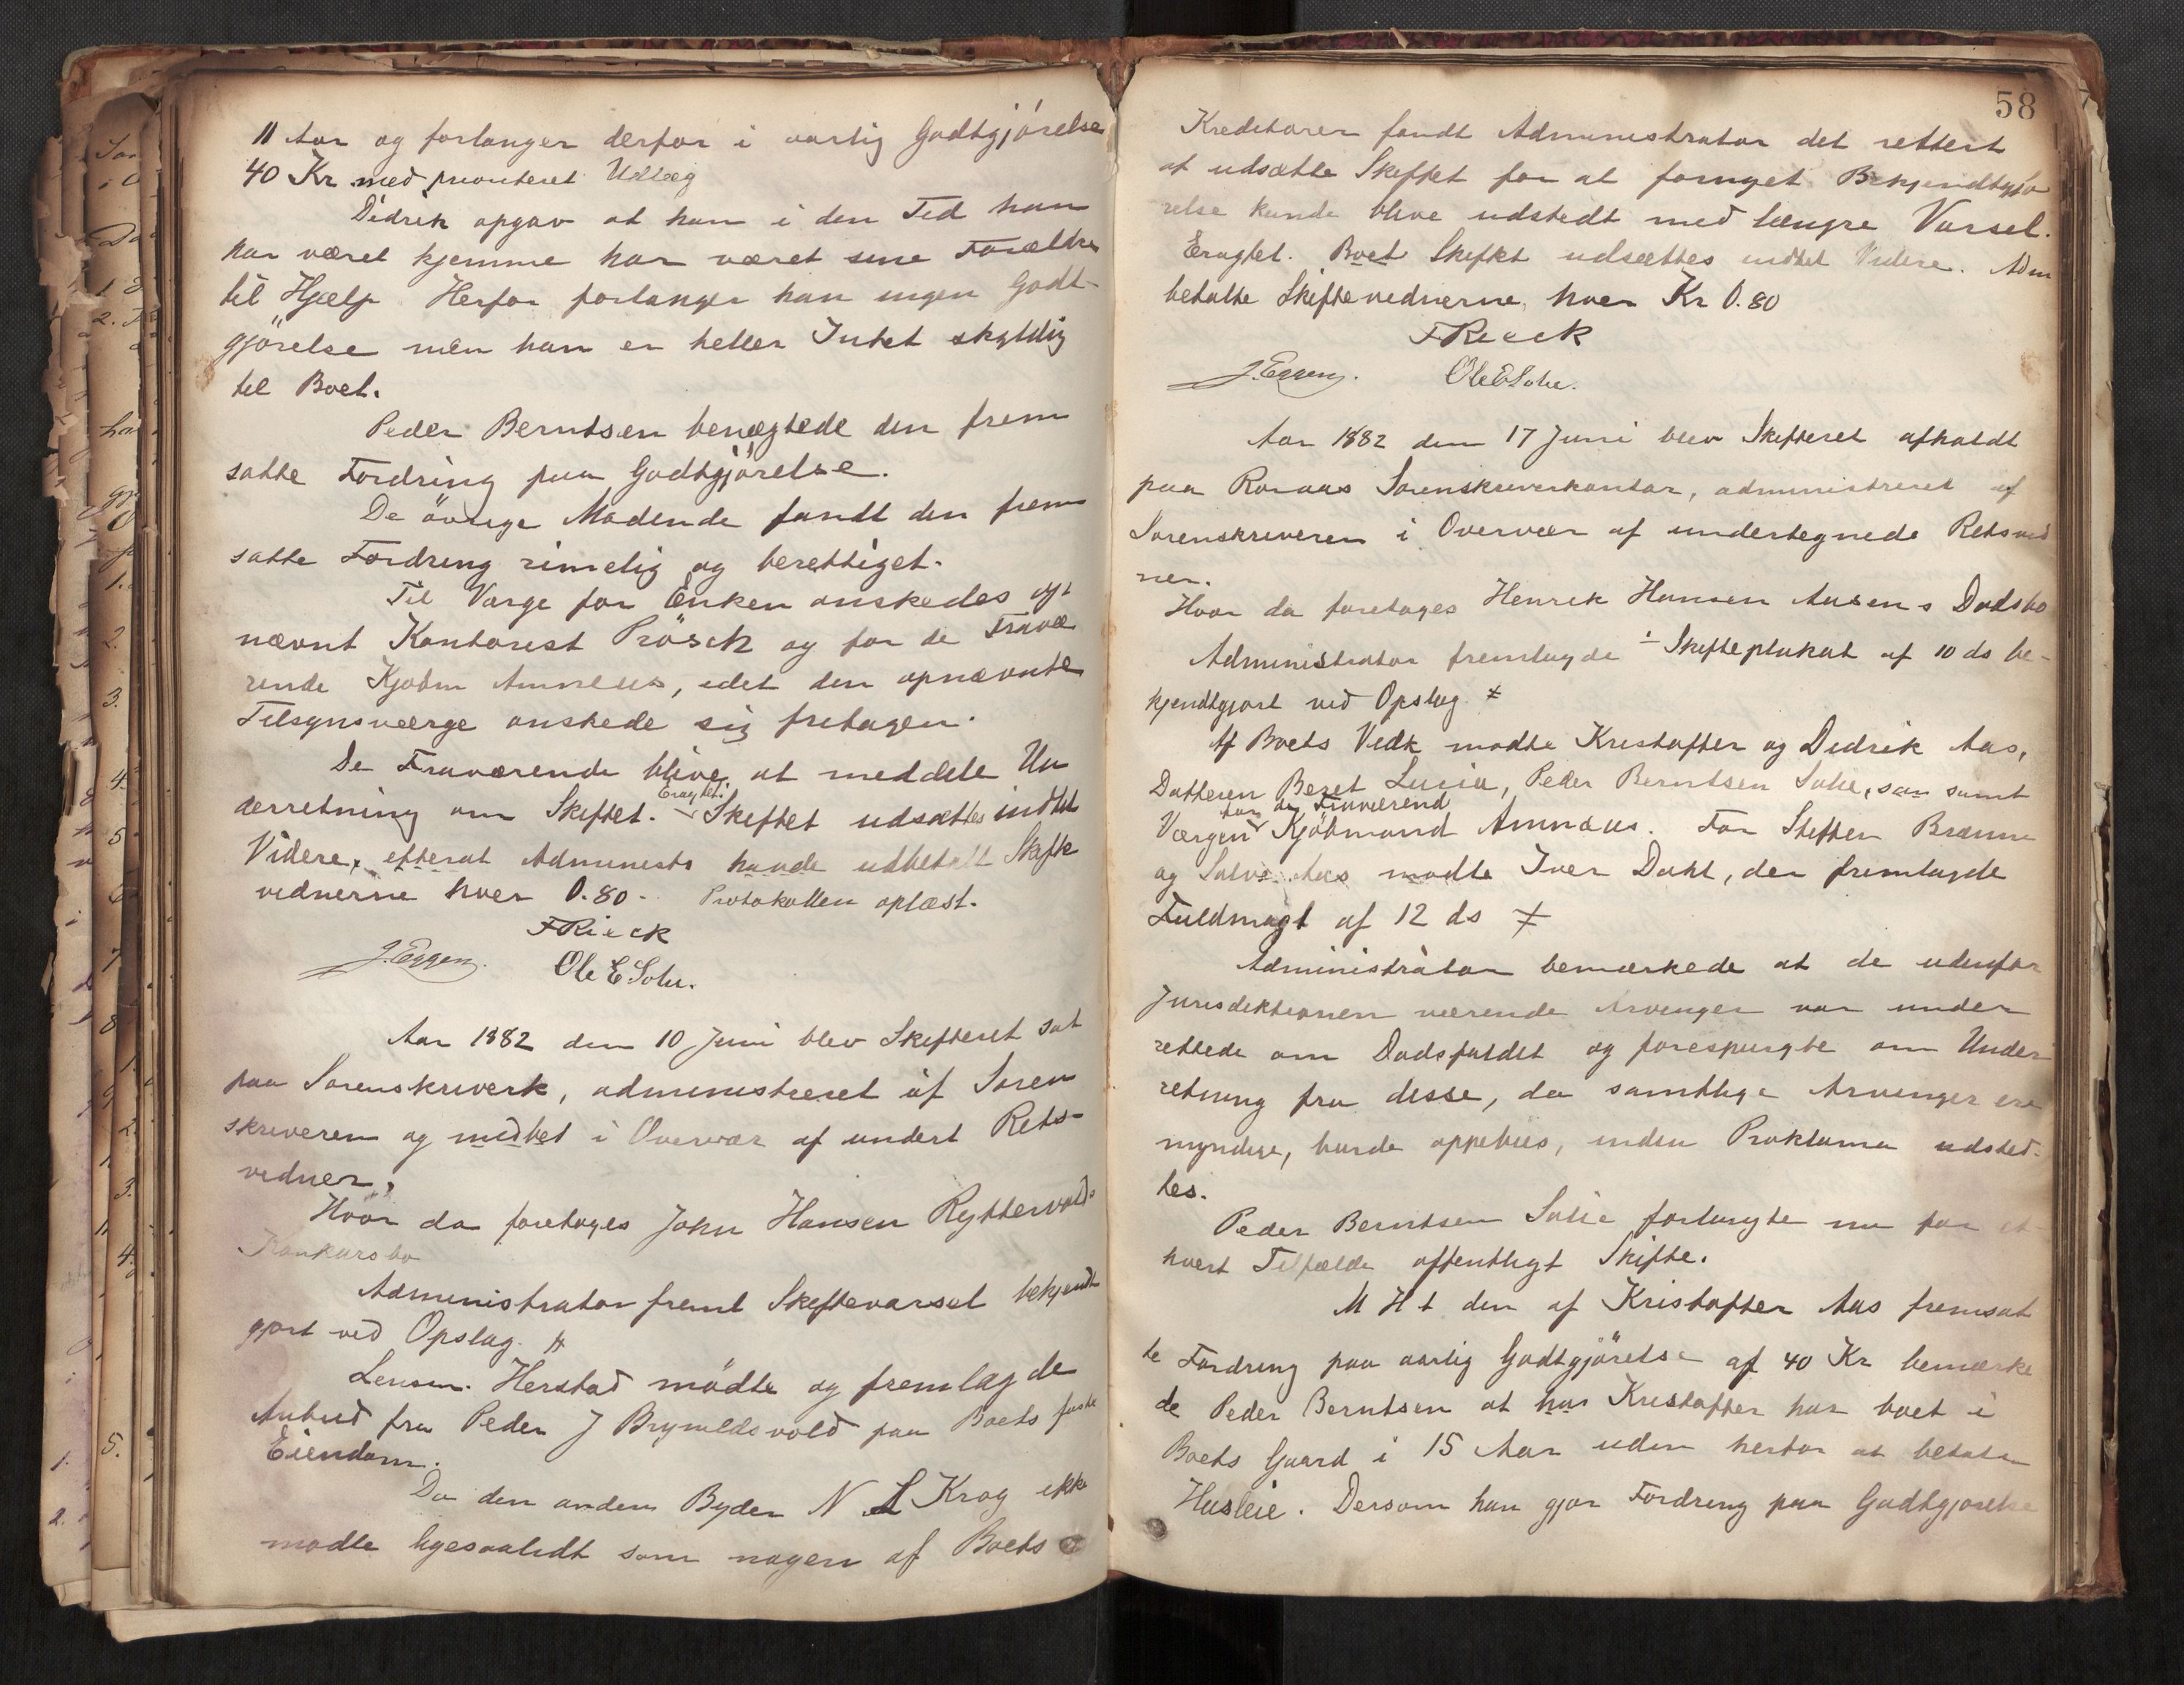 11 Aar og forlanger derfor i aarlig Godtgjörelse
40 Kr med prioriteret Udlæg
Didrik opgav at han i den Tid han
har været hjemme har været sine Forældre
til Hjælp. Herfor forlanger han ingen Godt-
gjörelse men han er heller Intet skyldig
til Boet.
Peder Berntsen benægtede den frem
satte Fordring paa Godtgjörelse.
De övrige Mødende fandt den frem
satte Fordring rimelig og berettiget.
Til Værge for Enken ønskedes op-
nævnt Kontorist Prösch og for de Fravæ
rende Kjøbm Amneus, idet den opnævnte
Tilsynsværge ønskede sig fritagen.
De Fraværende blive at meddele Un
derretning om Skiftet. Eragtet: Skiftet udsættes indtil
Videre, efterat Administr havde udbetalt Skifte
vidnerne hver 0.80 - Protokollen oplæst.
F Rieck
J. Eggen. Ole E Solu.
Aar 1882 den 10 Juni blev Skifteret sat
paa Sorenskriverk, administreret af Soren
skriveren og medbet i Overvær af undert Rets-
vidner.
Hvor da foretoges John Hansen Ryttervolds
Konkursbo
Administrator freml Skiftevarsel bekjendt
gjort ved Opslag. #
Lensm. Herstad mödte og fremlagde
Anbud fra Peder J Brynildsvold paa Boets faste
Eiendom.
Da den anden Byder N L Krog ikke
mødte ligesaalidt som nogen af Boets
58
Kreditorer fandt Administrator det rettest
at udsætte Skiftet for at fornyet Bekjendtgjø
relse kunde blive udstedt med længre Varsel.
Eragtet. Boet Skiftet udsættes indtil Videre. Adm
betalte Skiftevidnerne hver Kr 0.80
F Rieck
J. Eggen. Ole E Solu.
Aar 1882 den 17 Juni blev Skifteret afholdt
paa Røraas Sorenskriverkontor, administreret af
Sorenskriveren i Overvær af undertegnede Retsvid
ner.
Hvor da foretoges Henrik Hansen Aasens Dødsbo
Administrator fremlagde ÷ Skifteplakat af 10 ds be-
kjendtgjort ved Opslag ≠
Af Boets Vedk mødte Kristoffer og Didrik Aas,
Datteren Beret Lucia, Peder Berntsen Solie, som samt
Værgen for de Fraværend Kjöbmand Amnæus. For Steffen Brænne
og Aas mødte Iver Dahl, der fremlagde
Fuldmagt af 12 ds ≠
Administrator bemærkede at de udenfor
Jurisdiktionen værende Arvinger var under
rettede om Dødsfaldet og forespurgte om Under
retning fra disse, da samtlige Arvinger ere
myndige, burde oppebies, inden Proklama udsted-
tes.
Peder Berntsen Solie forlangte nu for et
hvert Tilfælde offentligt Skifte.
M H t den af Kristoffer Aas fremsat
te Fordring paa aarlig Godtgjörelse af 40 Kr bemærke
de Peder Berntsen at har Kristoffer har boet i
Boets Gaard i 15 Aar uden herfor at betale
Husleie. Dersom han gjør Fordring paa Godtgjørelse